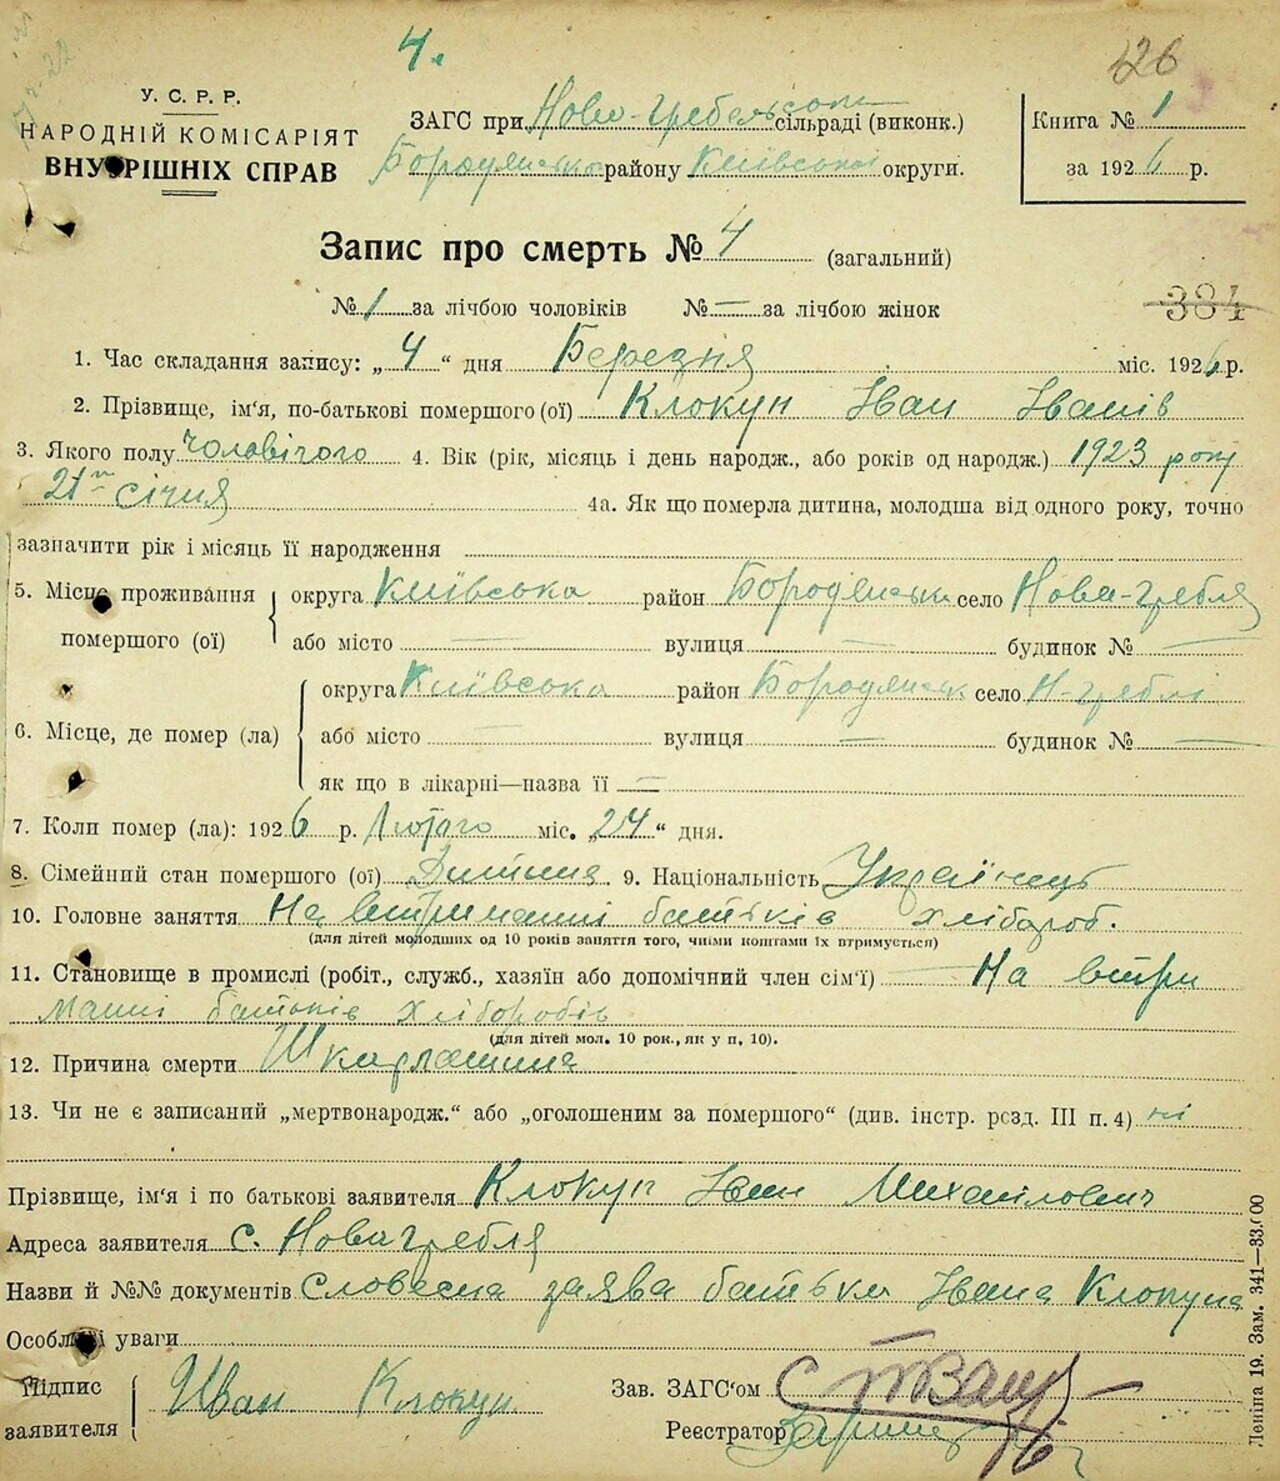 4.
126
У. С. Р. Р.
НАРОДНІЙ КОМІСАРІЯТ
ВНУТРІШНІХ СПРАВ
ЗАГС при Ново-Гребельском сільраді (виконк.)
Бородянського району Київської округи.
Книга № 1
за 1926 р.
Запис про смерть № 4 (загальний)
№ 1 за лічбою чоловіків № — за лічбою жінок
384
1. Час складання запису: „4“ дня Березня міс. 1926 р.
2. Прізвище, ім'я, по-батькові помершого (ої) Клокун Іван Іванів
3. Якого полу Чоловічого 4. Вік (рік, місяць і день народж., або років од народж.) 1923 року
21го січня 4а. Як що померла дитина, молодша від одного року, точно
зазначити рік і місяць її народження
5. Місце проживання помершого (ої) округа Київська район Бородянськ село Нова-гребля
або місто — вулиця — будинок № —
6. Місце, де помер (ла) округа Київська район Бородянськ село Н-греблі
або місто — вулиця — будинок № —
як що в лікарні—назва її —
7. Коли помер (ла): 1926 р. Лютого міс. „24“ дня.
8. Сімейний стан помершого (ої) Дитина 9. Національність Українець
10. Головне заняття На втриманні батьків хлібороб.
(для дітей молодших од 10 років заняття того, чиїми коштами їх втримується)
11. Становище в промислі (робіт., служб., хазяїн або допомічний член сім'ї) На втри
манні батьків Хліборобів
(для дітей мол. 10 рок., як у п, 10).
12. Причина смерти Шкарлатина
13. Чи не є записаний „мертвонародж.“ або „оголошеним за помершого“ (див. інстр. розд. III п. 4) ні
Прізвище, ім'я і по батькові заявителя Клокун Іван Михайлович
Адреса заявителя с. Нова гребля
Назви й №№ документів Словесна заява батька Івана Клокуна
Особливі уваги
Підпис заявителя Иван Клокун
Зав. ЗАГС'ом
Реєстратор
Леніна 19. Зам. 341—83.000